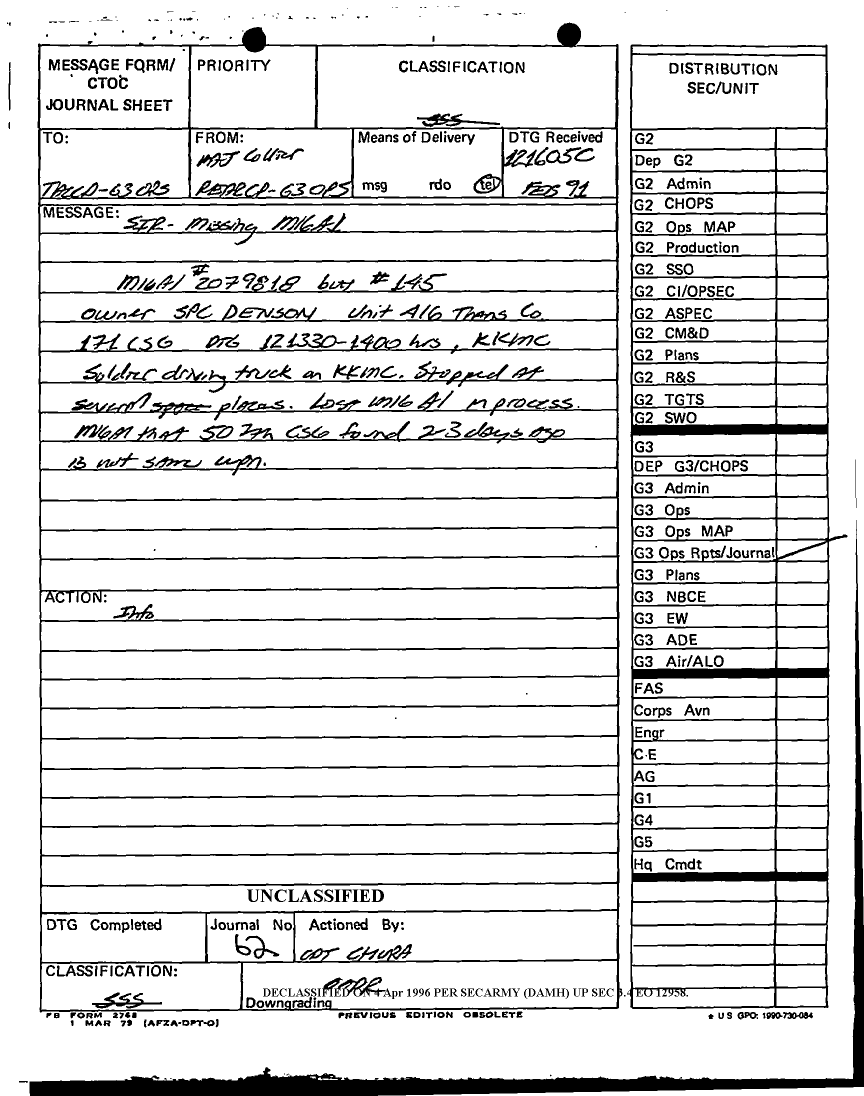 MESSAGE FORM/
CTOC
JOURNAL SHEET
PRIORITY
CLASSIFICATION
SSS
TO:
TACCP-G3 OPS
FROM:
MAJ Collier
REARCP-G3 OPS
Means of Delivery
msg rdo tel
DTG Received
121605C
FEB 91
MESSAGE:
SIR- Missing M16A1
M16A1 #2079818 butt #145
owner SPC DENSON Unit 416 Trans Co.
171 CSG DTG 121330-1400 hrs, KKMC
Soldier driving truck on KKMC. Stopped at
several places. Lost M16A1 in process.
M16A1 that 507th CSG found 2-3 days ago
is not same wpn.
ACTION:
Info
UNCLASSIFIED
DTG Completed
Journal No.
62
Actioned By:
CPT CHURA
CLASSIFICATION:
SSS
DECLASSIFIED ON 4 Apr 1996 PER SECARMY (DAMH) UP SEC 3.4 EO 12958.
Downgrading
FB FORM 2768
1 MAR 79 (AFZA-DPT-O)
PREVIOUS EDITION OBSOLETE
* U S GPO: 1990-730-084
DISTRIBUTION
SEC/UNIT
G2
Dep G2
G2 Admin
G2 CHOPS
G2 Ops MAP
G2 Production
G2 SSO
G2 CI/OPSEC
G2 ASPEC
G2 CM&D
G2 Plans
G2 R&S
G2 TGTS
G2 SWO
G3
DEP G3/CHOPS
G3 Admin
G3 Ops
G3 Ops MAP
G3 Ops Rpts/Journal
G3 Plans
G3 NBCE
G3 EW
G3 ADE
G3 Air/ALO
FAS
Corps Avn
Engr
C-E
AG
G1
G4
G5
Hq Cmdt